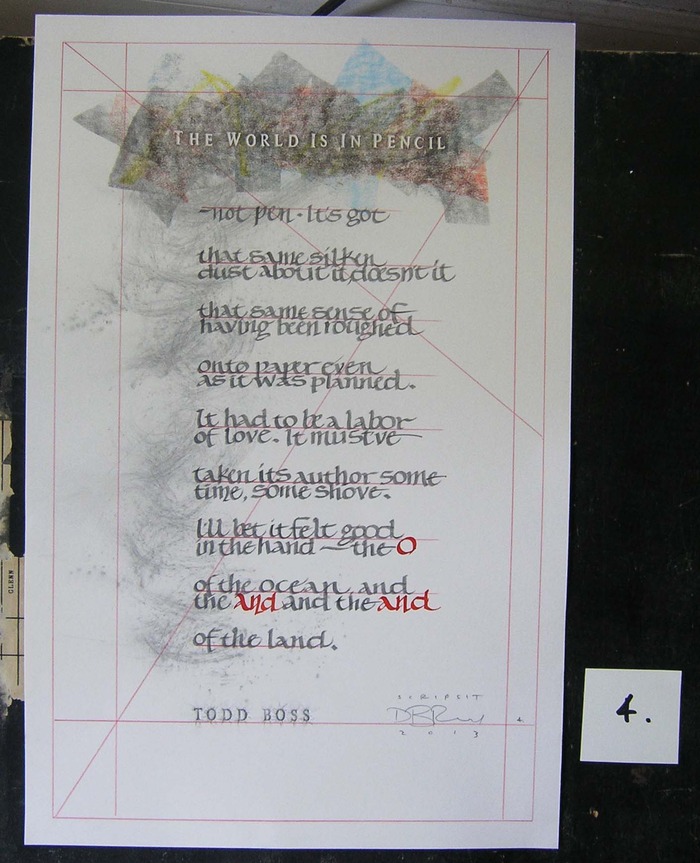 THE WORLD IS IN PENCIL
—not pen. It's got
that same silken
dust about it, doesn't it
that same sense of
having been roughed
onto paper even
as it was planned.
It had to be a labor
of love. It must've
taken its author some
time, some shove.
I'll bet it felt good
in the hand — the O
of the ocean, and
the and and the and
of the land.
TODD BOSS
SCRIPSIT
2013
4.
GLENN